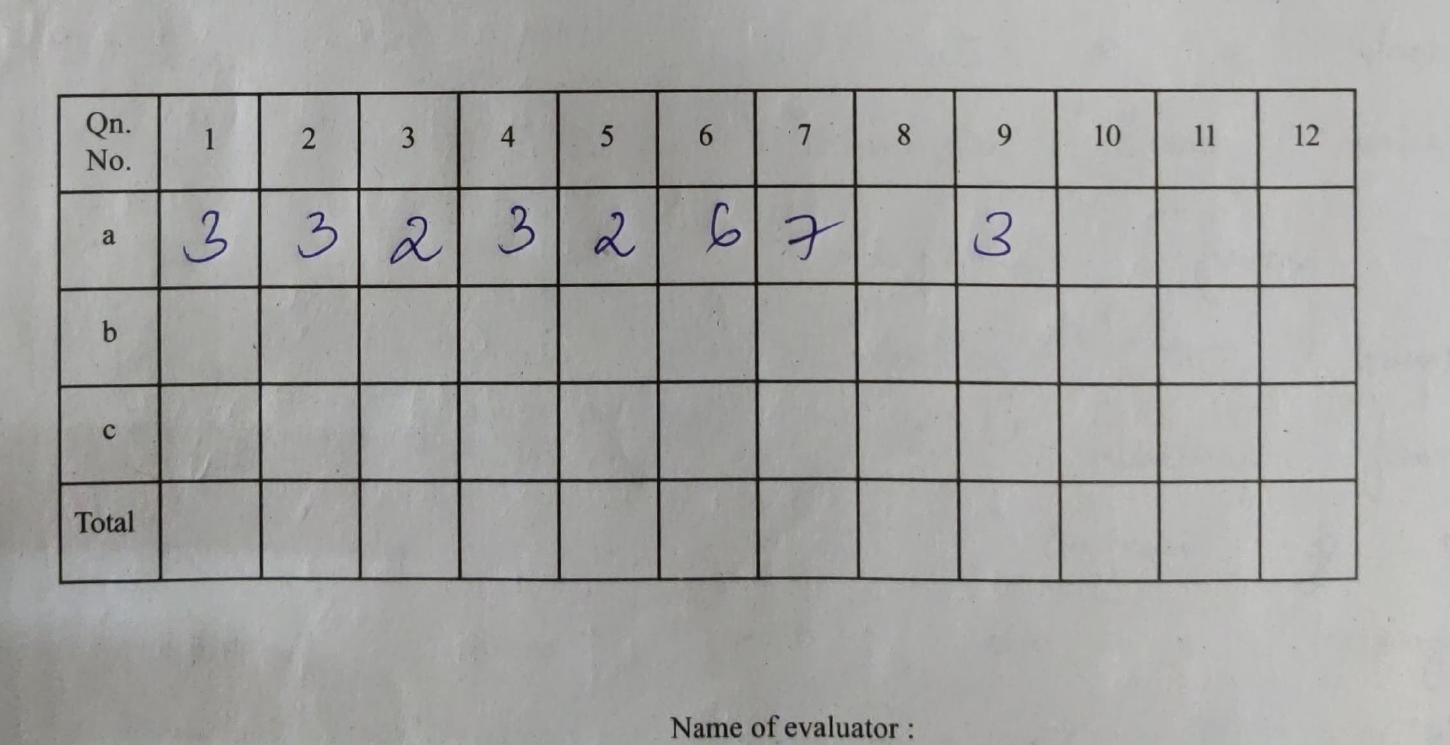 Qn. No. 1 2 3 4 5 6 7 8 9 10 11 12
a 3 3 2 3 2 6 7 3
b
c
Total
Name of evaluator :